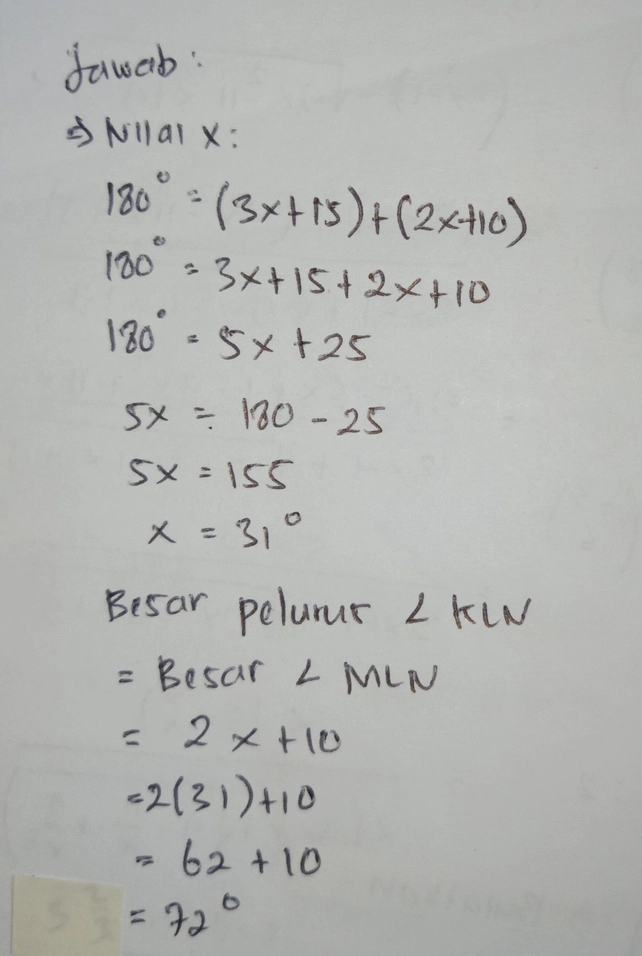 Jawab :
⇒ Nilai x:
180° = (3x+15)+(2x+10)
180° = 3x+15+2x+10
180° = 5x+25
5x = 180 - 25
5x = 155
x = 31°
Besar pelurus ∠ KLN
= Besar ∠ MLN
= 2x+10
=2(31)+10
= 62 + 10
= 72°